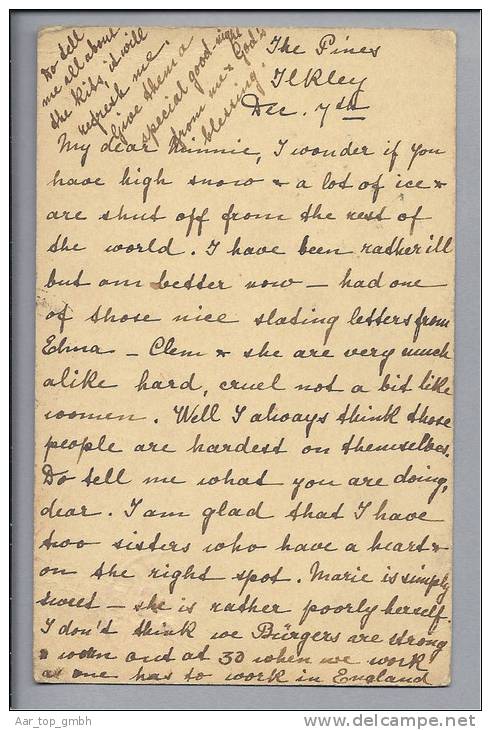 The Pines
Ilkley
Dec. 7th
My dear Minnie, I wonder if you
have high snow & a lot of ice &
are shut off from the rest of
the world. I have been rather ill
but am better now – had one
of those nice slating letters from
Edma – Clem & she are very much
alike hard, cruel not a bit like
women. Well I always think those
people are hardest on themselves.
Do tell me what you are doing,
dear. I am glad that I have
two sisters who have a heart &
on the right spot. Marie is simply
sweet – she is rather poorly herself.
I don't think we Bürgers are strong
& worn out at 30 when we work
as one has to work in England
Do tell
me all about
the Kids, it will
refresh me.
Give them a
special good-night
from me & God's
blessing.
Aar_top_gmbh
www.delcampe.net